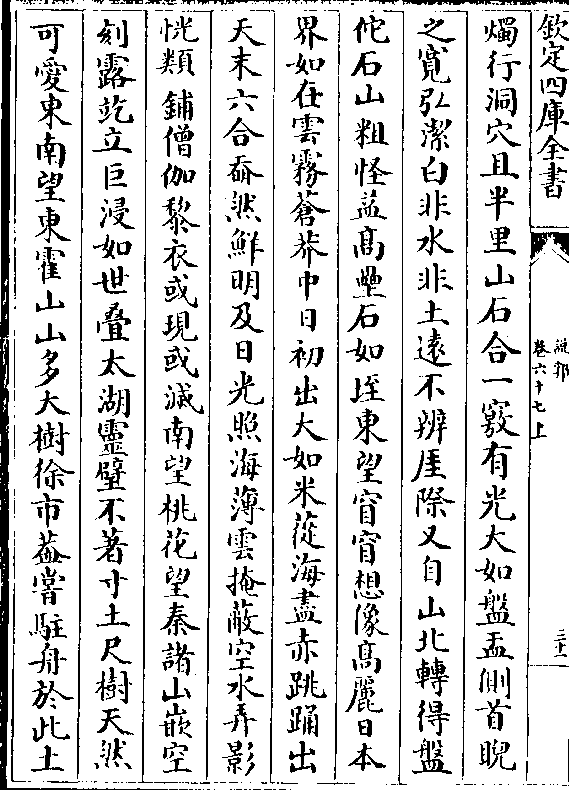 欽定四庫全書
說郛
卷六十七上
三十二
燭行洞穴且半里山石合一竅有光大如盤盂側首睨
之寛弘潔白非水非土遠不辨厓際又自山北轉得盤
佗石山粗怪益高壘石如垤東望窅窅想像髙麗日本
界如在雲霧蒼莽中日初出大如米簁海盡赤跳踊出
天末六合奝然鮮明及日光照海薄雲掩蔽空水弄影
恍類鋪僧伽黎衣或現或滅南望桃花望秦諸山嵌空
刻露屹立巨浸如世叠太湖靈壁不著寸土尺樹天然
可愛東南望東霍山山多大樹徐市葢嘗駐舟於此土